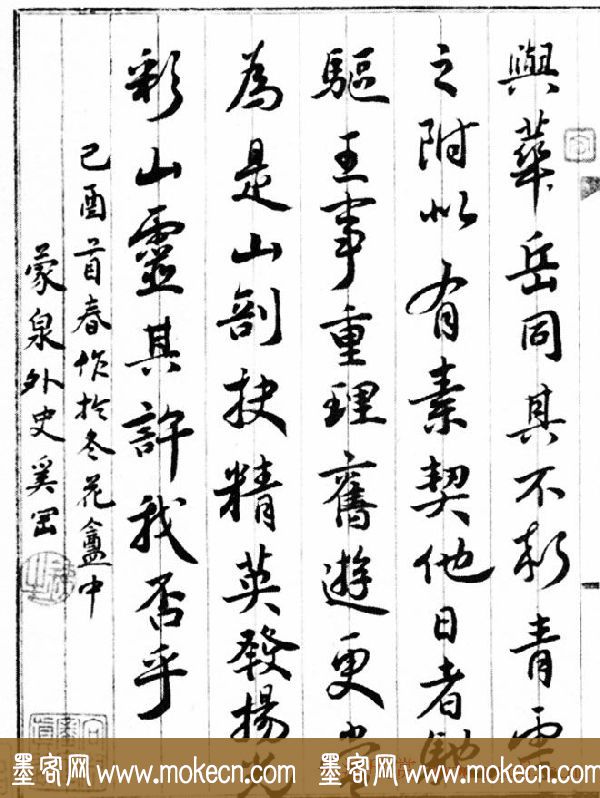 與華岳同其不朽青雲
之附似有素契他日者馳
驅王事重理舊遊更當
為是山剖抉精英發揚光
彩山靈其許我否乎
己酉首春作於冬花盦中
蒙泉外史奚岡
墨客网 www.mokecn.com 墨客网 www.mokecn.com